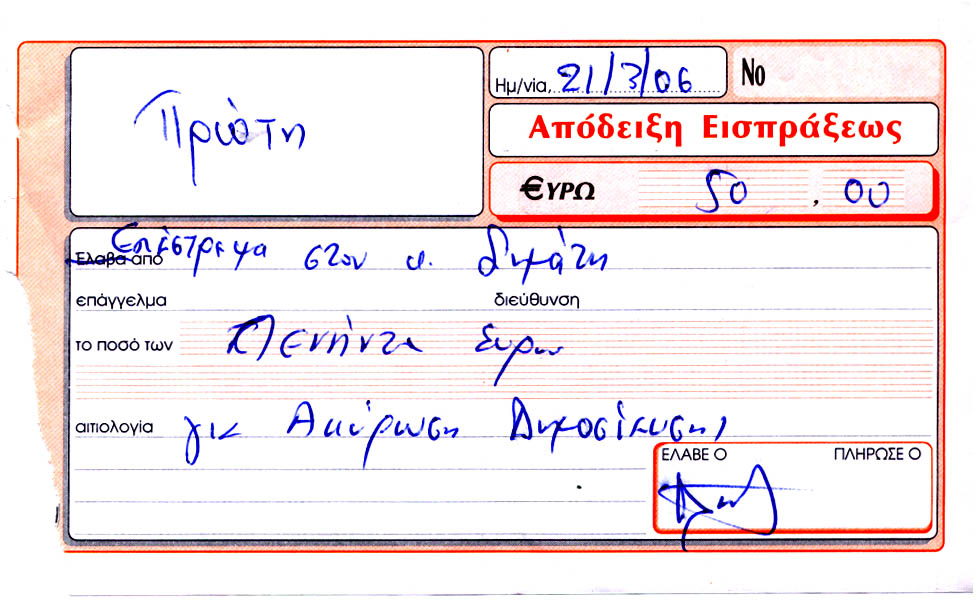 Πρώτη
Ημ/νία, 21/3/06 No
Απόδειξη Εισπράξεως
€ΥΡΩ 50,00
Έλαβα από Επέστρεψα στον κ. Δημάτη
επάγγελμα διεύθυνση
το ποσό των Πενήντα ευρω
αιτιολογία για Ακύρωση Δημοσίευσης
ΕΛΑΒΕ Ο ΠΛΗΡΩΣΕ Ο